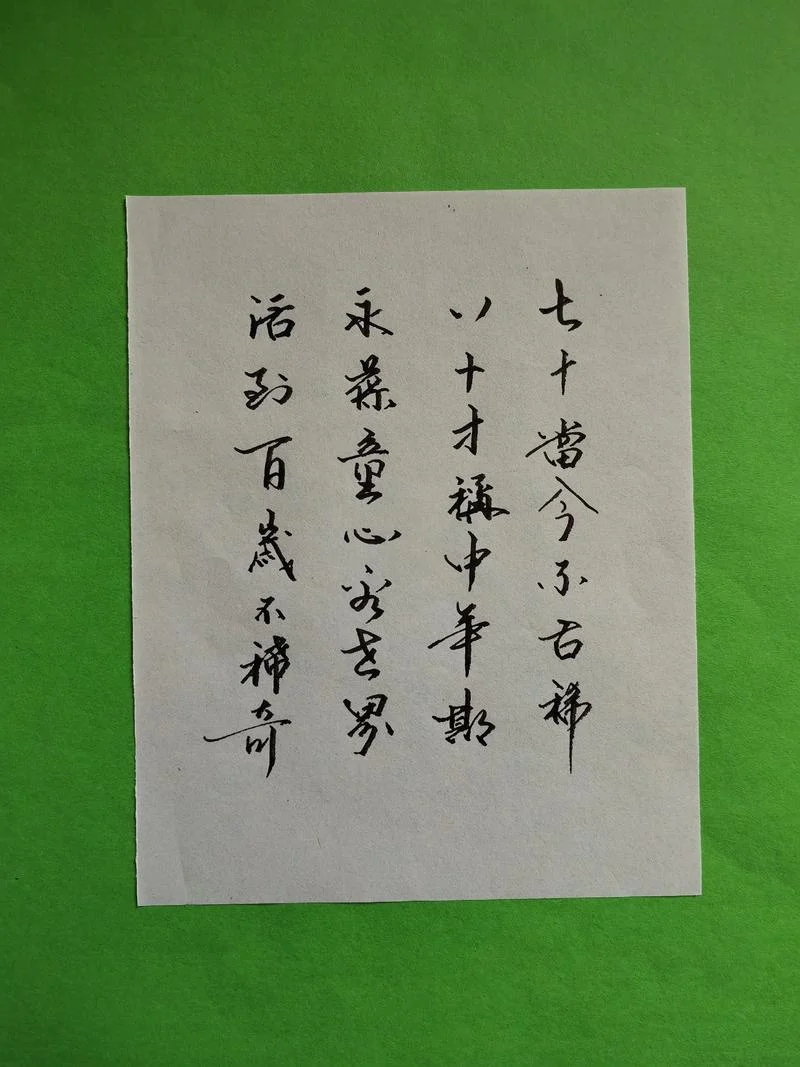 七十當今不古稀
八十才稱中年期
永葆童心容世界
活到百歲不稀奇